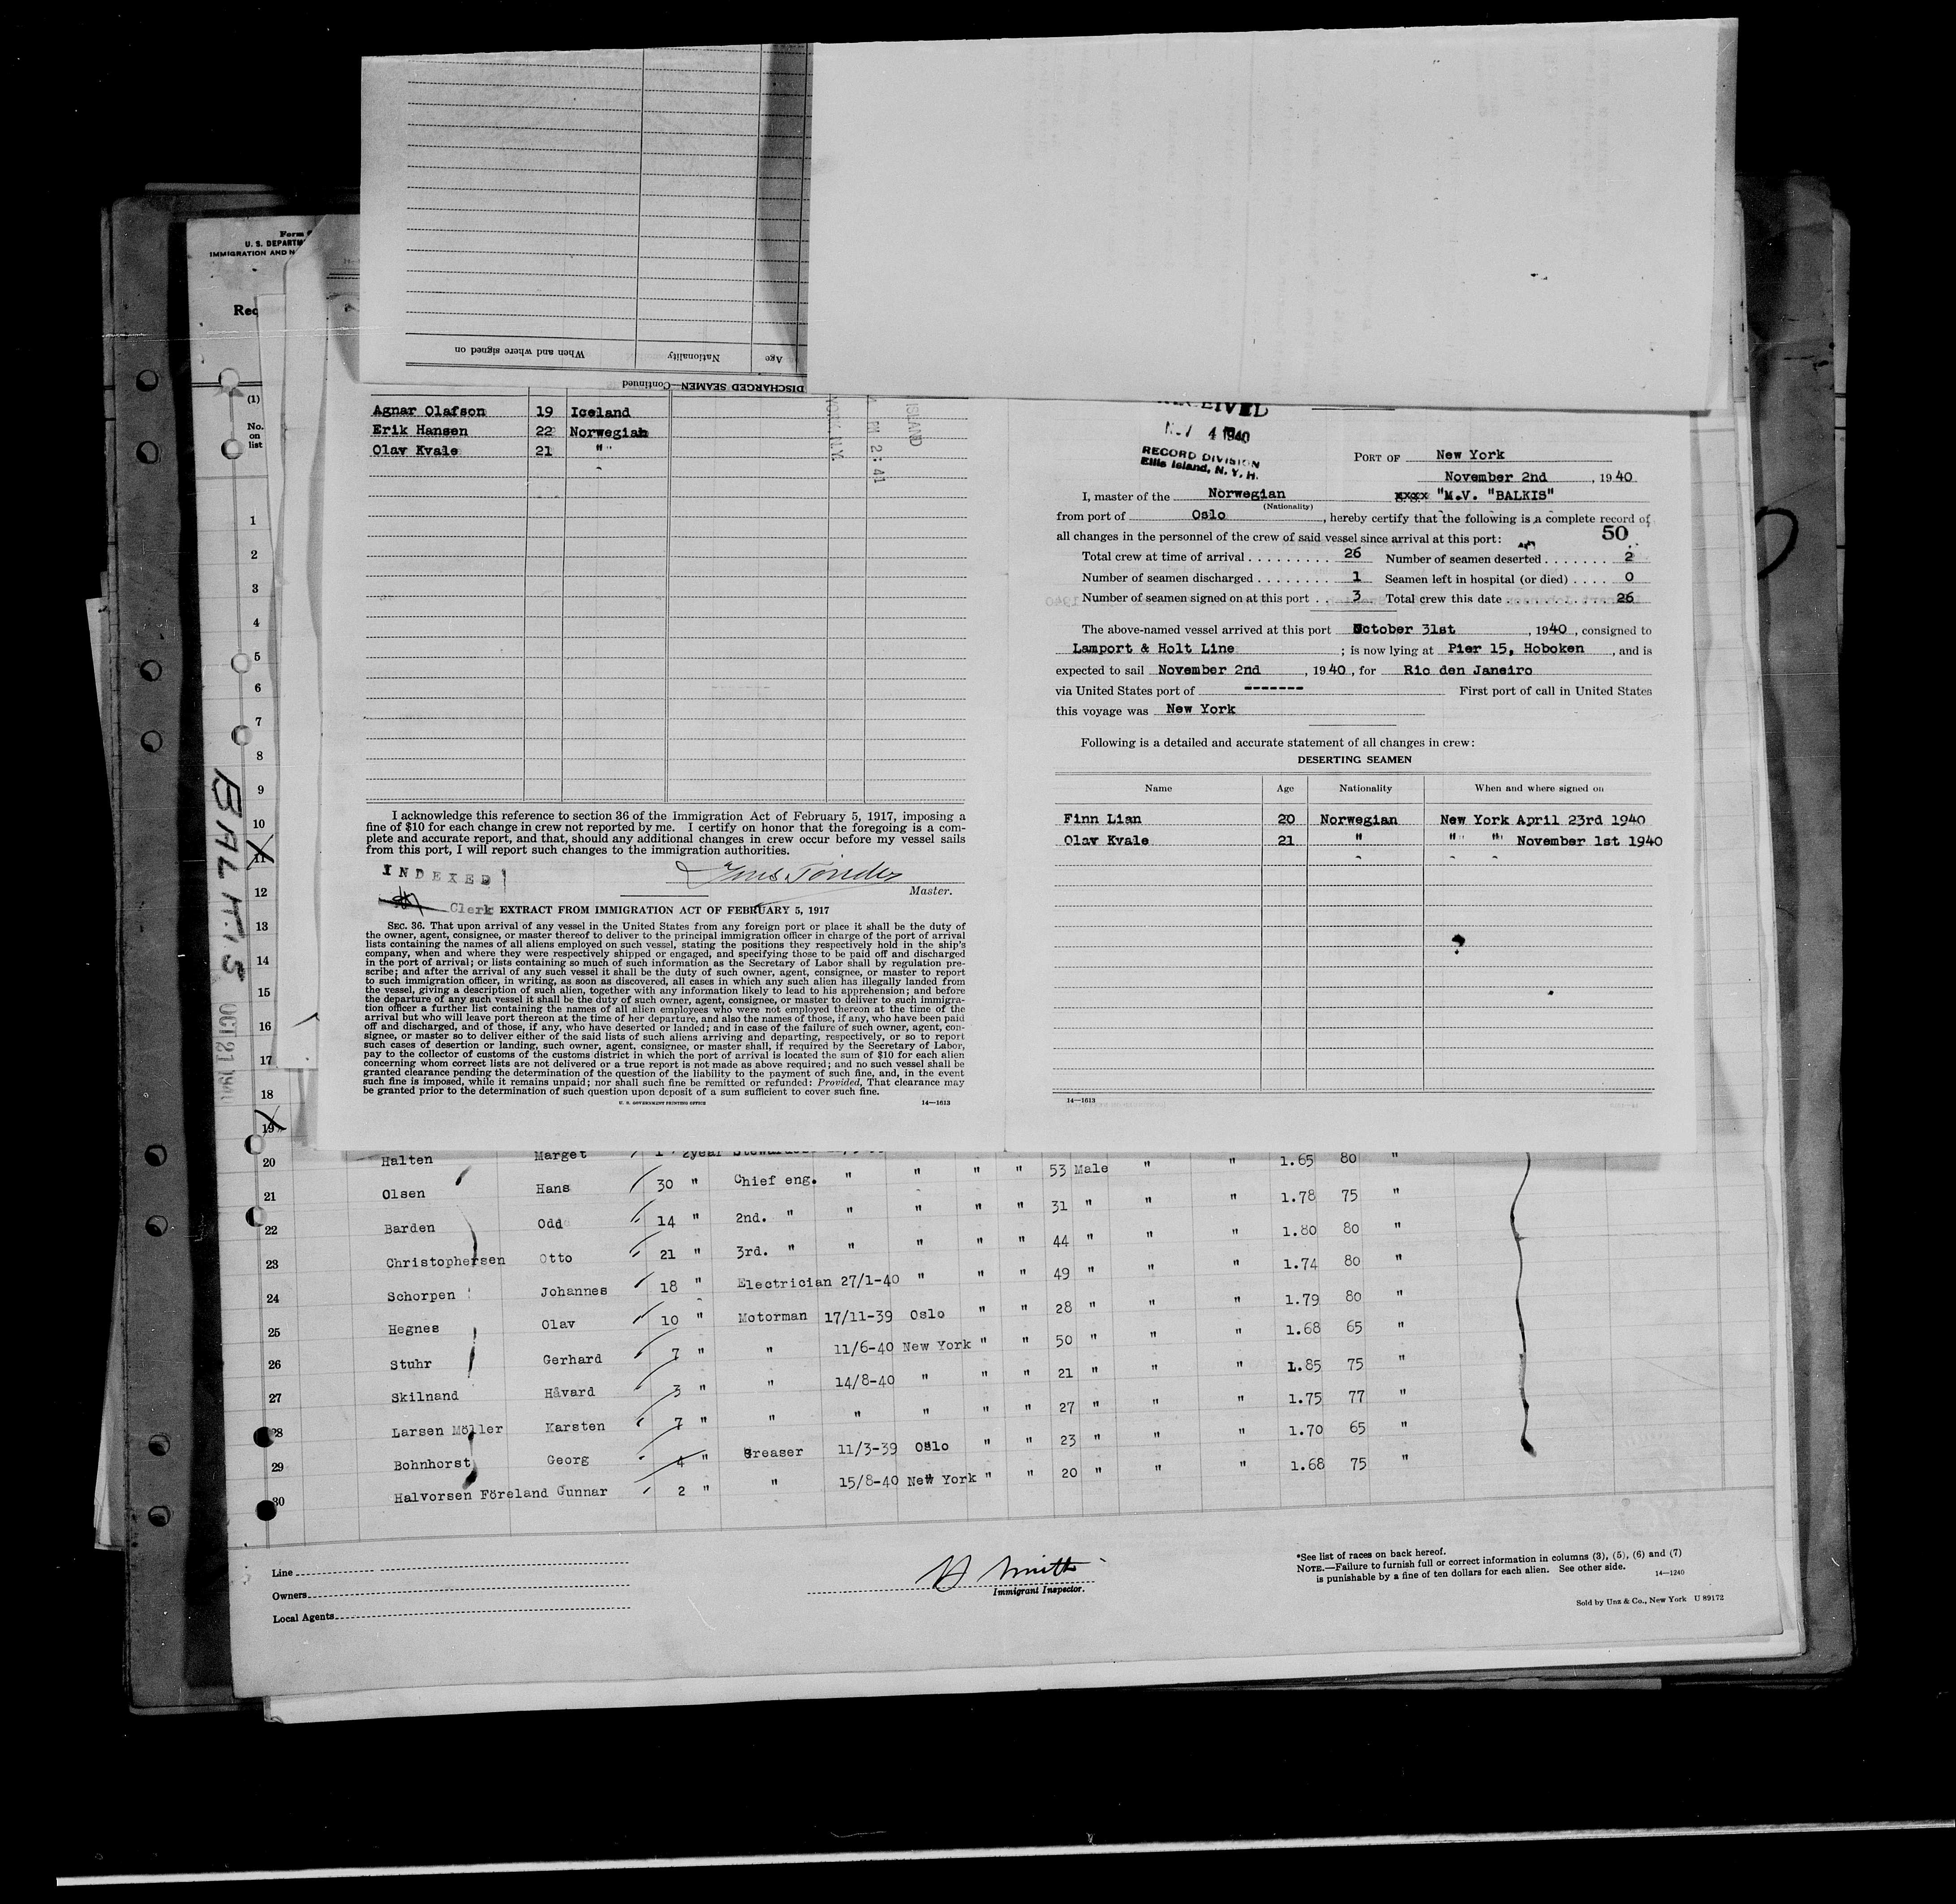 When and where signed on
Nationality
Age
DISCHARGED SEAMEN—Continued
U. S. DEPARTM
IMMIGRATION AND N
Rec
(1)
No. on list
Agnar Olafson 19 Iceland
Erik Hansen 22 Norwegian
Olav Kvale 21 " "
ISLAND
2:41
RECEIVED
4 1940
RECORD DIVISION
Ellis Island, N. Y. H.
PORT OF New York
November 2nd, 1940
I, master of the Norwegian xxxx "M.V. "BALKIS"
(Nationality)
from port of Oslo, hereby certify that the following is a complete record of
all changes in the personnel of the crew of said vessel since arrival at this port:
50
Total crew at time of arrival . . . . . . . . 26 Number of seamen deserted . . . . . . . 2
Number of seamen discharged . . . . . . . . 1 Seamen left in hospital (or died) . . . . 0
Number of seamen signed on at this port . . 3 Total crew this date . . . . . . . . . . . 26
The above-named vessel arrived at this port October 31st, 1940, consigned to
Lamport & Holt Line; is now lying at Pier 15, Hoboken, and is
expected to sail November 2nd, 1940, for Rio den Janeiro
via United States port of ------- First port of call in United States
this voyage was New York
Following is a detailed and accurate statement of all changes in crew:
DESERTING SEAMEN
Name Age Nationality When and where signed on
Finn Lian 20 Norwegian New York April 23rd 1940
Olav Kvale 21 " " " November 1st 1940
14—1613
I acknowledge this reference to section 36 of the Immigration Act of February 5, 1917, imposing a
fine of $10 for each change in crew not reported by me. I certify on honor that the foregoing is a com-
plete and accurate report, and that, should any additional changes in crew occur before my vessel sails
from this port, I will report such changes to the immigration authorities.
INDEXED
Master.
Clerk
EXTRACT FROM IMMIGRATION ACT OF FEBRUARY 5, 1917
SEC. 36. That upon arrival of any vessel in the United States from any foreign port or place it shall be the duty of
the owner, agent, consignee, or master thereof to deliver to the principal immigration officer in charge of the port of arrival
lists containing the names of all aliens employed on such vessel, stating the positions they respectively hold in the ship's
company, when and where they were respectively shipped or engaged, and specifying those to be paid off and discharged
in the port of arrival; or lists containing so much of such information as the Secretary of Labor shall by regulation pre-
scribe; and after the arrival of any such vessel it shall be the duty of such owner, agent, consignee, or master to report
to such immigration officer, in writing, as soon as discovered, all cases in which any such alien has illegally landed from
the vessel, giving a description of such alien, together with any information likely to lead to his apprehension; and before
the departure of any such vessel it shall be the duty of such owner, agent, consignee, or master to deliver to such immigra-
tion officer a further list containing the names of all alien employees who were not employed thereon at the time of the
arrival but who will leave port thereon at the time of her departure, and also the names of those, if any, who have been paid
off and discharged, and of those, if any, who have deserted or landed; and in case of the failure of such owner, agent, con-
signee, or master so to deliver either of the said lists of such aliens arriving and departing, respectively, or so to report
such cases of desertion or landing, such owner, agent, consignee, or master shall, if required by the Secretary of Labor,
pay to the collector of customs of the customs district in which the port of arrival is located the sum of $10 for each alien
concerning whom correct lists are not delivered or a true report is not made as above required; and no such vessel shall be
granted clearance pending the determination of the question of the liability to the payment of such fine, and, in the event
such fine is imposed, while it remains unpaid; nor shall such fine be remitted or refunded: Provided, That clearance may
be granted prior to the determination of such question upon deposit of a sum sufficient to cover such fine.
U. S. GOVERNMENT PRINTING OFFICE 14—1613
BALKIS
1
2
3
4
5
6
7
8
9
10
11
12
13
14
15
16
17
18
19
20 Halten Marget 2year 1.65 80 "
21 Olsen Hans 30 " Chief eng. " " " " 53 Male " " 1.78 75 "
22 Barden Odd 14 " 2nd. " " " " " 31 " " " 1.80 80 "
23 Christophersen Otto 21 " 3rd. " " " " " 44 " " " 1.74 80 "
24 Schorpen Johannes 18 " Electrician 27/1-40 " " " 49 " " " 1.79 80 "
25 Hegnes Olav 10 " Motorman 17/11-39 Oslo " " 28 " " " 1.68 65 "
26 Stuhr Gerhard 7 " " 11/6-40 New York " " 50 " " " 1.85 75 "
27 Skilnand Håvard 3 " " 14/8-40 " " " 21 " " " 1.75 77 "
28 Larsen Möller Karsten 7 " " " " " " 27 " " " 1.70 65 "
29 Bohnhorst Georg 4 " Greaser 11/3-39 Oslo " " 23 " " " 1.68 75 "
30 Halvorsen Föreland Gunnar 2 " " 15/8-40 New York " " 20 " " "
Line
Owners
Local Agents
Immigrant Inspector.
*See list of races on back hereof.
NOTE.—Failure to furnish full or correct information in columns (3), (5), (6) and (7)
is punishable by a fine of ten dollars for each alien. See other side. 14—1240
Sold by Unz & Co., New York U 89172